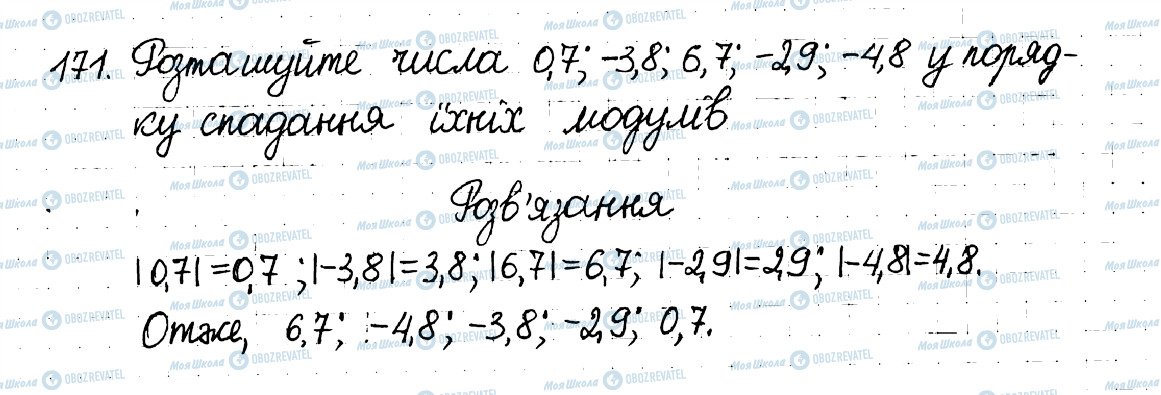 171. Розташуйте числа 0,7; -3,8; 6,7; -2,9; -4,8 у поряд-
ку спадання їхніх модулів
Розв'язання
|0,7|=0,7 ; |-3,8|=3,8; |6,7|=6,7; |-2,9|=2,9; |-4,8|=4,8.
Отже, 6,7; -4,8; -3,8; -2,9; 0,7.